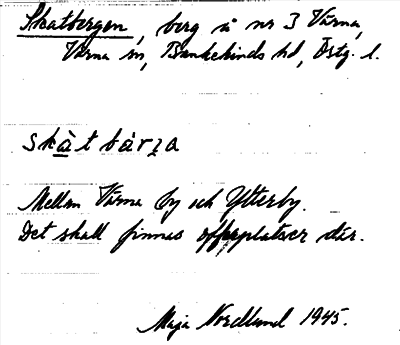 Skatbergen, berg å nr 3 Värna,
Värna sn, Bankekinds hd, Östg. l.
skàt bárʒa
Mellan Värna by och Ytterby.
Det skall finnas offerplatser där.
Maja Nordlund 1945.